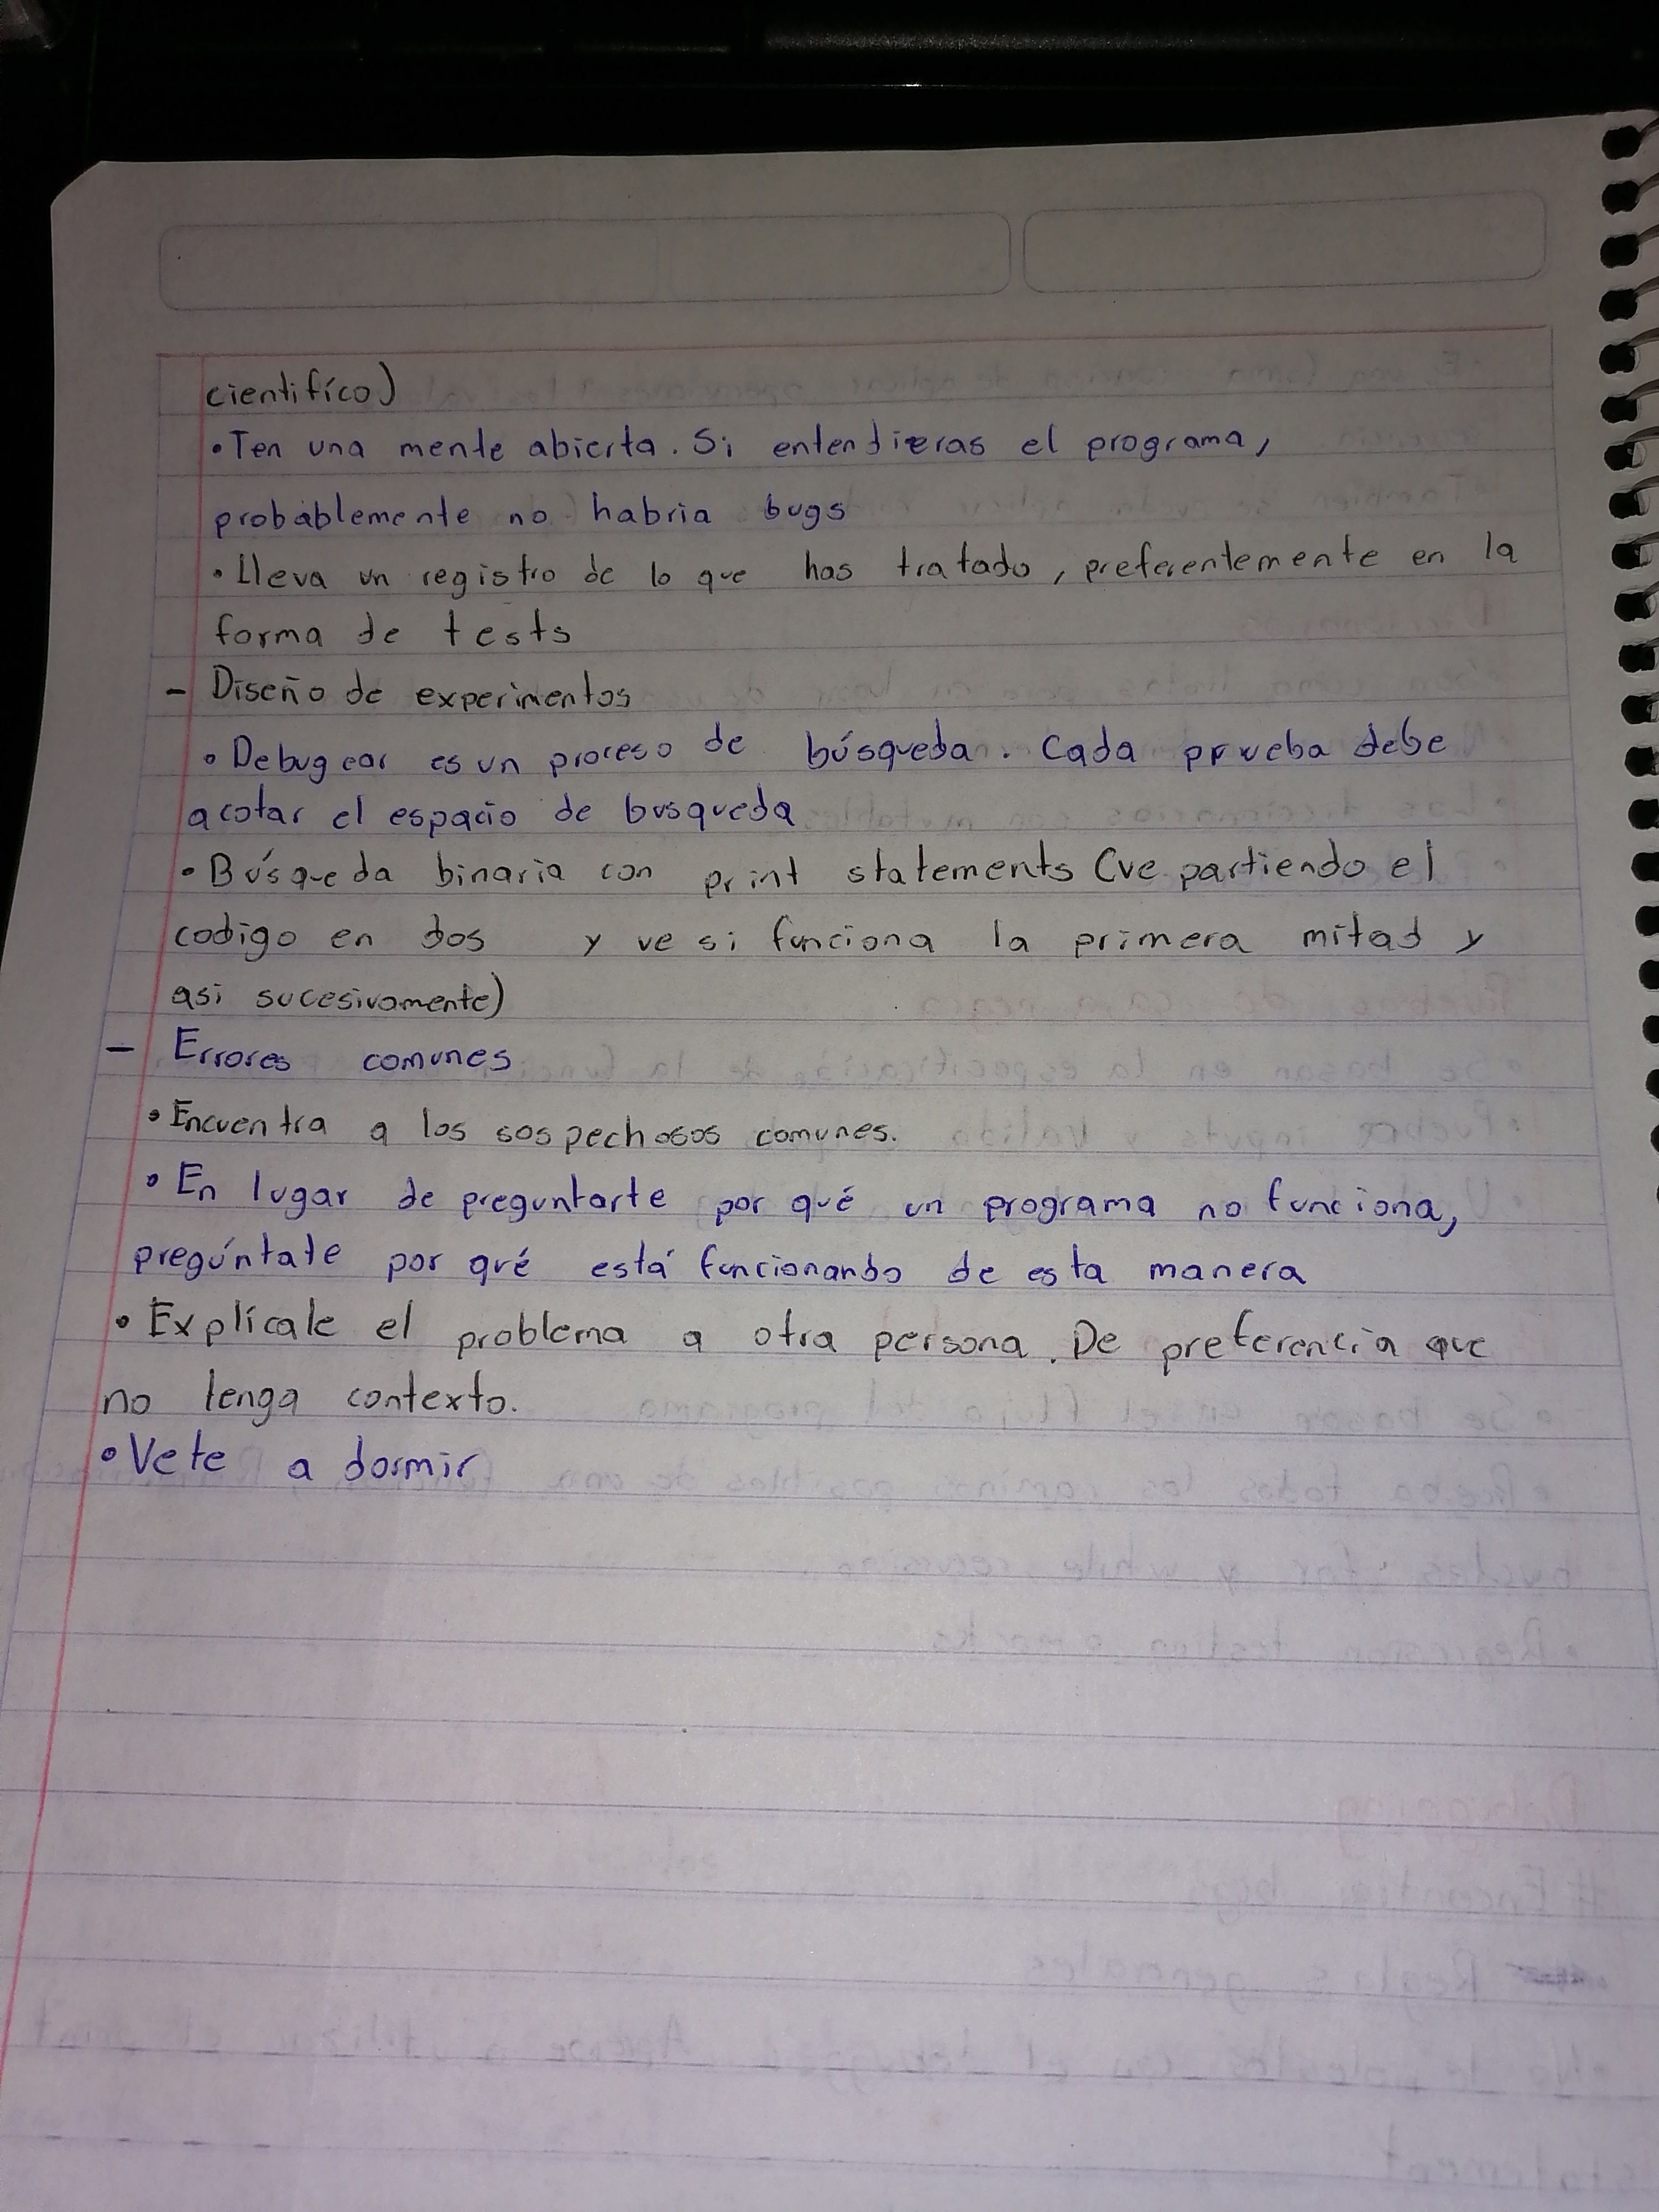 científico)
• Ten una mente abierta. Si entendieras el programa,
probablemente no habria bugs
• Lleva un registro de lo que has tratado, preferentemente en la
forma de tests
- Diseño de experimentos
• Debugear es un proceso de búsqueda. Cada prueba debe
acotar el espacio de busqueda
• Búsqueda binaria con print statements (ve partiendo el
codigo en dos y ve si funciona la primera mitad y
asi sucesivamente)
- Errores comunes
• Encuentra a los sospechosos comunes.
• En lugar de preguntarte por qué un programa no funciona,
pregúntate por qué está funcionando de esta manera
• Explícale el problema a otra persona. De preferencia que
no tenga contexto.
• Vete a dormir